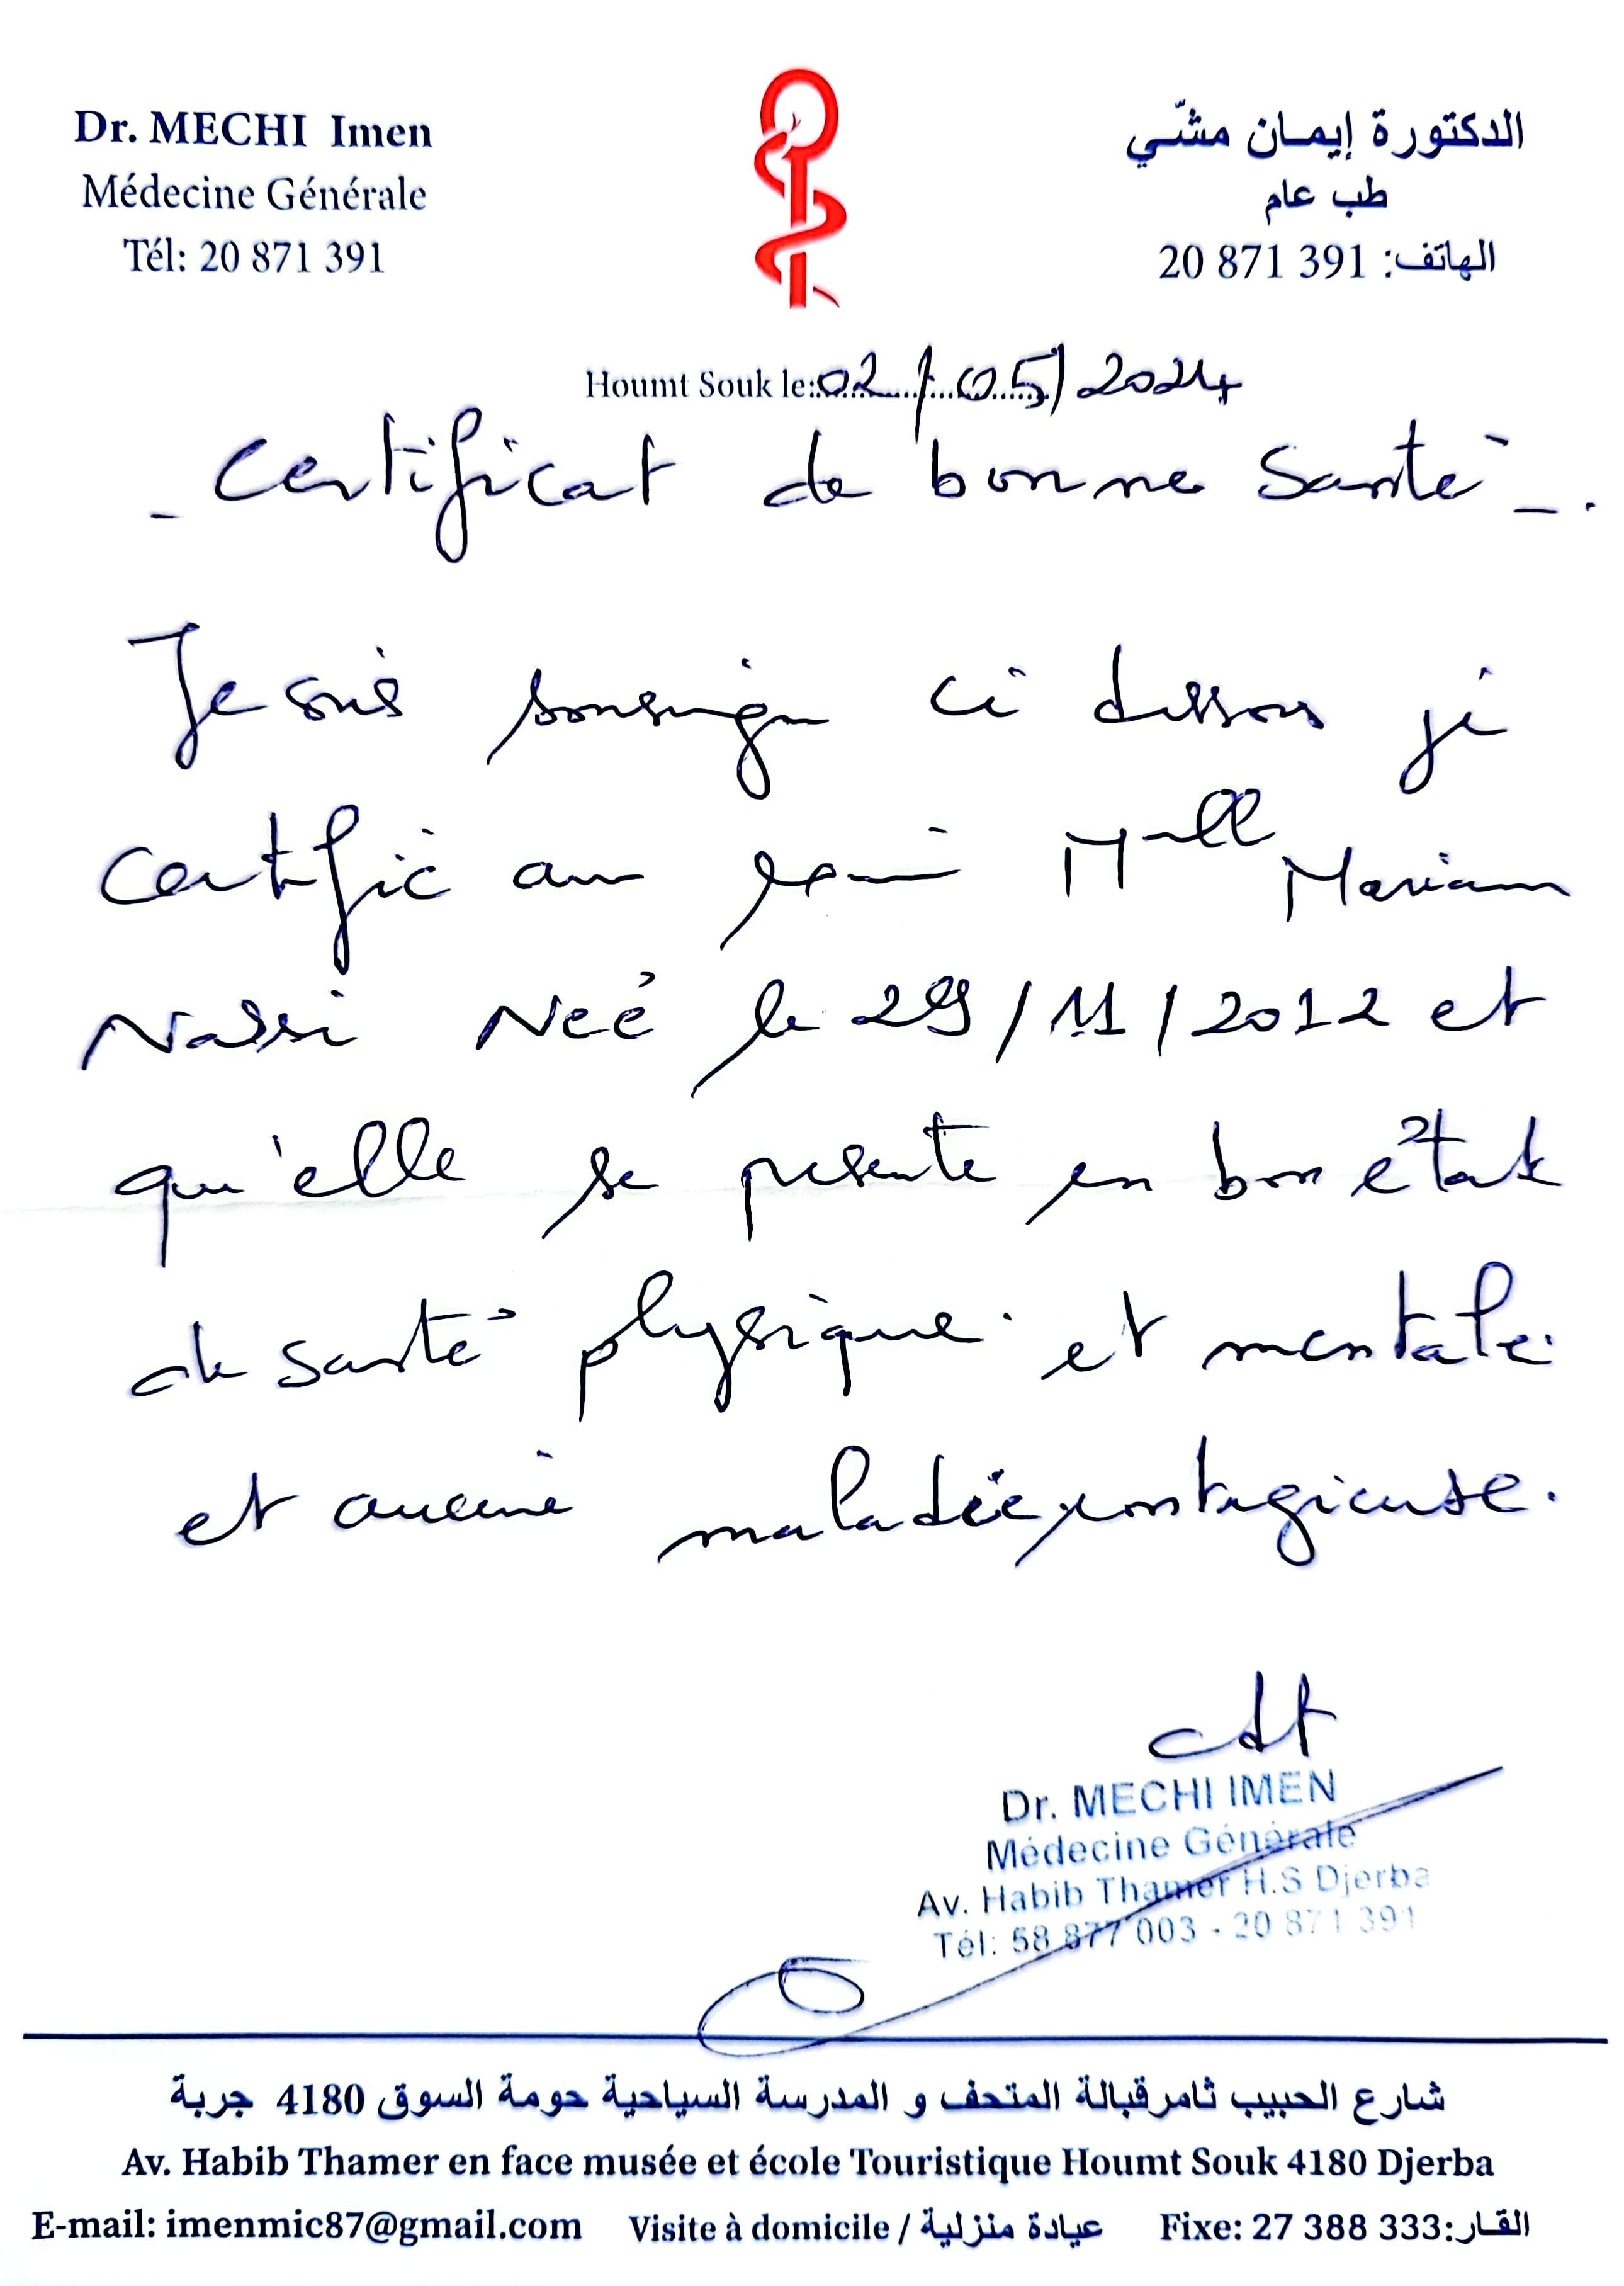 Dr. MECHI Imen
Médecine Générale
Tél: 20 871 391
الدكتورة إيمان مشّي
طب عام
الهاتف: 20 871 391
Houmt Souk le: 02/05/2024
- Certificat de bonne santé -.
Je suis ci dessous je
certifie Mlle Mariam
Née le 29/11/2012 et
qu'elle se presente en bon état
de santé physique et mentale
et aucune maladie contagieuse.
Dr. MECHI IMEN
Médecine Générale
Av. Habib Thamer H.S Djerba
Tél: 58 877 003 - 20 871 391
شارع الحبيب ثامر قبالة المتحف و المدرسة السياحية حومة السوق 4180 جربة
Av. Habib Thamer en face musée et école Touristique Houmt Souk 4180 Djerba
E-mail: imenmic87@gmail.com Visite à domicile / عيادة منزلية Fixe: 27 388 333 :القار